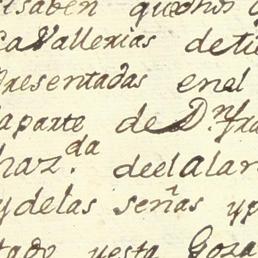 saben que
cavallerias de
presentadas en el
aparte de Dn. fra
haz.da de el alar
y de las señas y p
tado y esta Goza